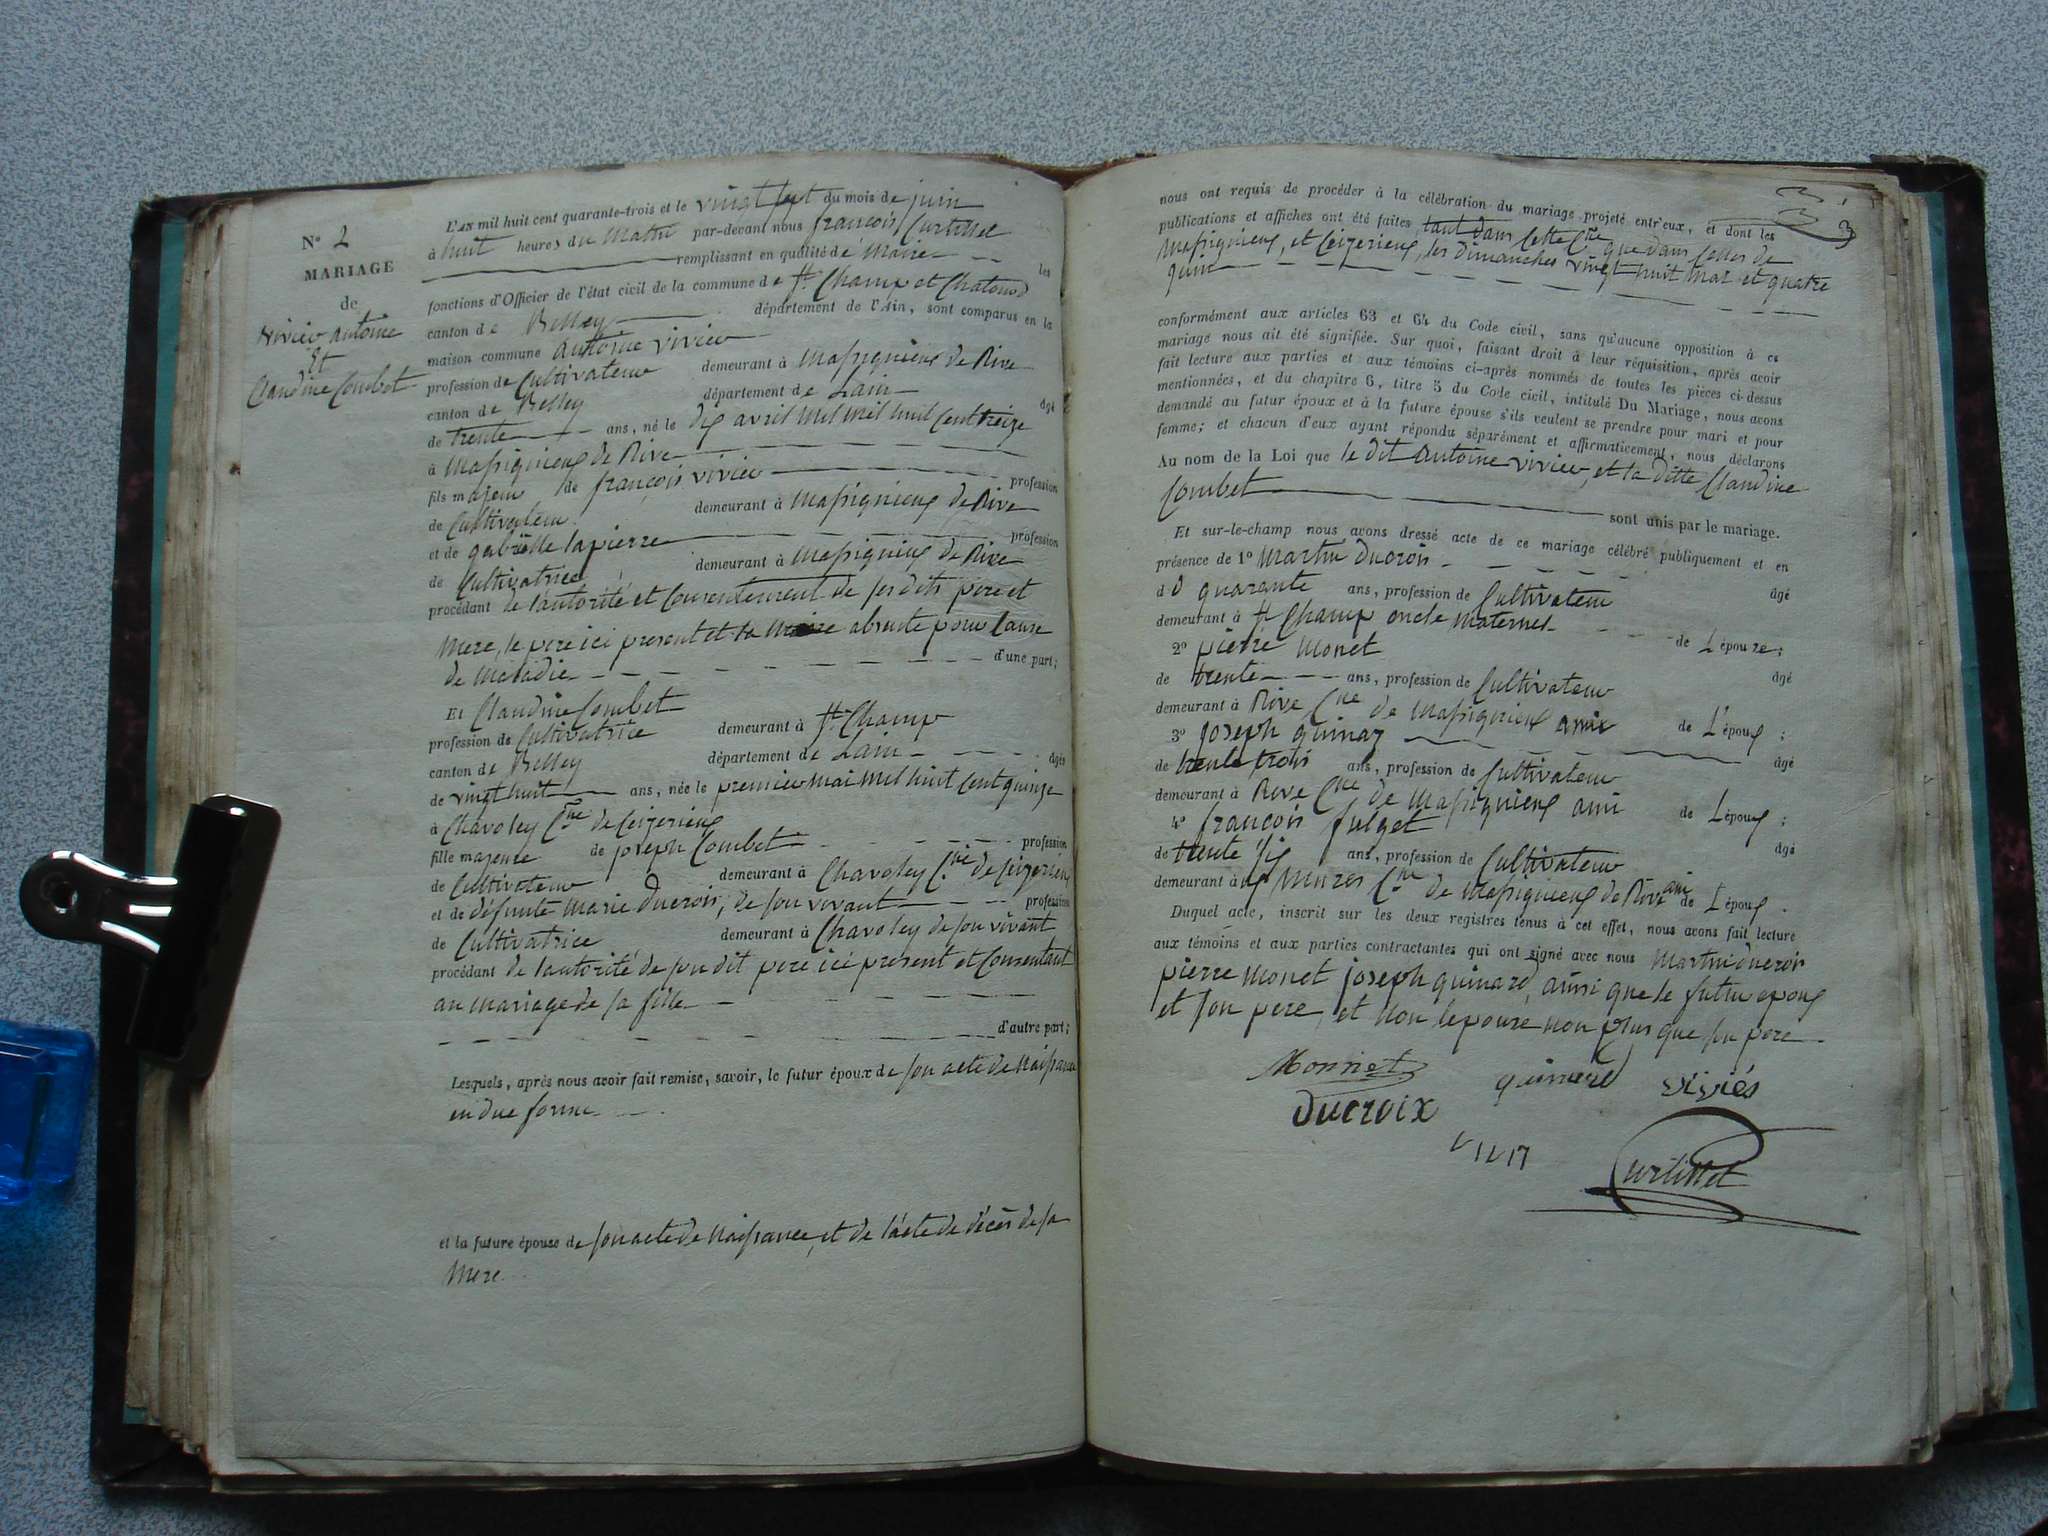 N° 2
MARIAGE
de
Vivier antoine
Et
Claudine Combet
L'AN mil huit cent quarante-trois et le vingt sept du mois de juin
à huit heures du matin par-devant nous françois Curtillet
remplissant en qualité de Maire les
fonctions d'Officier de l'état civil de la commune de St Champ et Chatonod
canton de Belley département de l'Ain, sont comparus en la
maison commune antoine vivier
profession de Cultivateur demeurant à Massignieux de Rive
canton de Belley département de Lain âgé
de trente ans, né le dix avril mil mil huit cent treize
à Massignieux de Rive
fils majeur de françois vivier profession
de Cultivateur demeurant à Massignieux de Rive
et de gabrielle lapierre profession
de Cultivatrice demeurant à Massignieux de Rive
procédant de l'autorité et Consentement de ses dits pere et
mere, le pere ici present et la mere absente pour Cause
de maladie d'une part;
Et Claudine Combet
profession de Cultivatrice demeurant à St Champ
canton de Belley département de Lain âgée
de vingt huit ans, née le premier mai mil huit cent quinze
à Chavoley Cne de Ceizerieux
fille majeure de joseph Combet profession
de Cultivateur demeurant à Chavoley Cne de Ceizerieux
et de défunte Marie Ducroix, de son vivant profession
de Cultivatrice demeurant à Chavoley de son vivant
procédant de l'autorité de son dit pere ici present et Consentant
au mariage de sa fille
d'autre part;
Lesquels, après nous avoir fait remise, savoir, le futur époux de son acte de Naissance
en due forme
et la future épouse de son acte de Naissance, et de l'acte de décès de sa
Mere.
3
nous ont requis de procéder à la célébration du mariage projeté entr'eux, et dont les
publications et affiches ont été faites tant dans cette Cne que dans celles de
Massignieux, et Ceizerieux, les dimanches vingt huit mai et quatre
juin
conformément aux articles 63 et 64 du Code civil, sans qu'aucune opposition à ce
mariage nous ait été signifiée. Sur quoi, faisant droit à leur réquisition, après avoir
fait lecture aux parties et aux témoins ci-après nommés de toutes les pièces ci-dessus
mentionnées, et du chapitre 6, titre 5 du Code civil, intitulé Du Mariage, nous avons
demandé au futur époux et à la future épouse s'ils veulent se prendre pour mari et pour
femme; et chacun d'eux ayant répondu séparément et affirmativement, nous déclarons
Au nom de la Loi que le dit antoine vivier, et la ditte Claudine
Combet sont unis par le mariage.
Et sur-le-champ nous avons dressé acte de ce mariage célébré publiquement et en
présence de 1° Martin Ducroix âgé
de quarante ans, profession de Cultivateur
demeurant à St Champ oncle maternel de Lépouse;
2° pierre Monet âgé
de trente ans, profession de Cultivateur
demeurant à Rive Cne de Massignieux ami de L'époux;
3° joseph quinar âgé
de trente trois ans, profession de Cultivateur
demeurant à Rive Cne de Massignieux ami de Lépoux;
4° françois fulget âgé
de trente six ans, profession de Cultivateur
demeurant à Mures Cne de Massignieux de Rive ami de Lépoux.
Duquel acte, inscrit sur les deux registres tenus à cet effet, nous avons fait lecture
aux témoins et aux parties contractantes qui ont signé avec nous Martin ducroix
pierre Monet joseph quinard, ainsi que le futur epoux
et son pere, et non lepouse non plus que son pere
Monnet quinard vivies
Ducroix
Curtillet